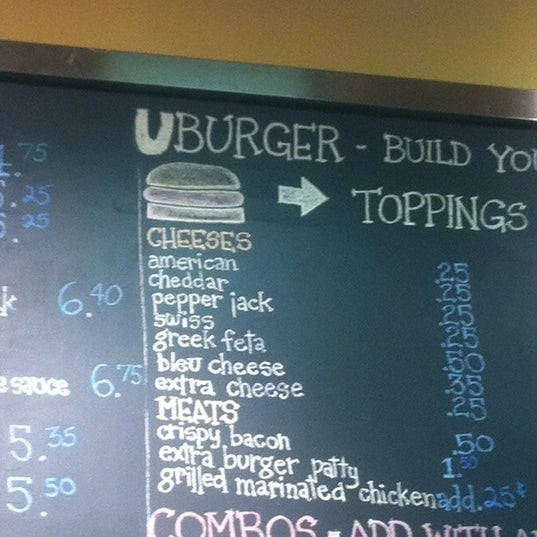 UBURGER - BUILD YO
TOPPINGS
CHEESES
american 25
cheddar 25
pepper jack 25
swiss 25
greek feta 50
bleu cheese
extra cheese 25
MEATS
crispy bacon .50
extra burger patty 1.50
grilled marinated chicken add .25¢
COMBOS - ADD WITH
.75
.25
.25
6.40
sauce 6.75
5.35
5.50